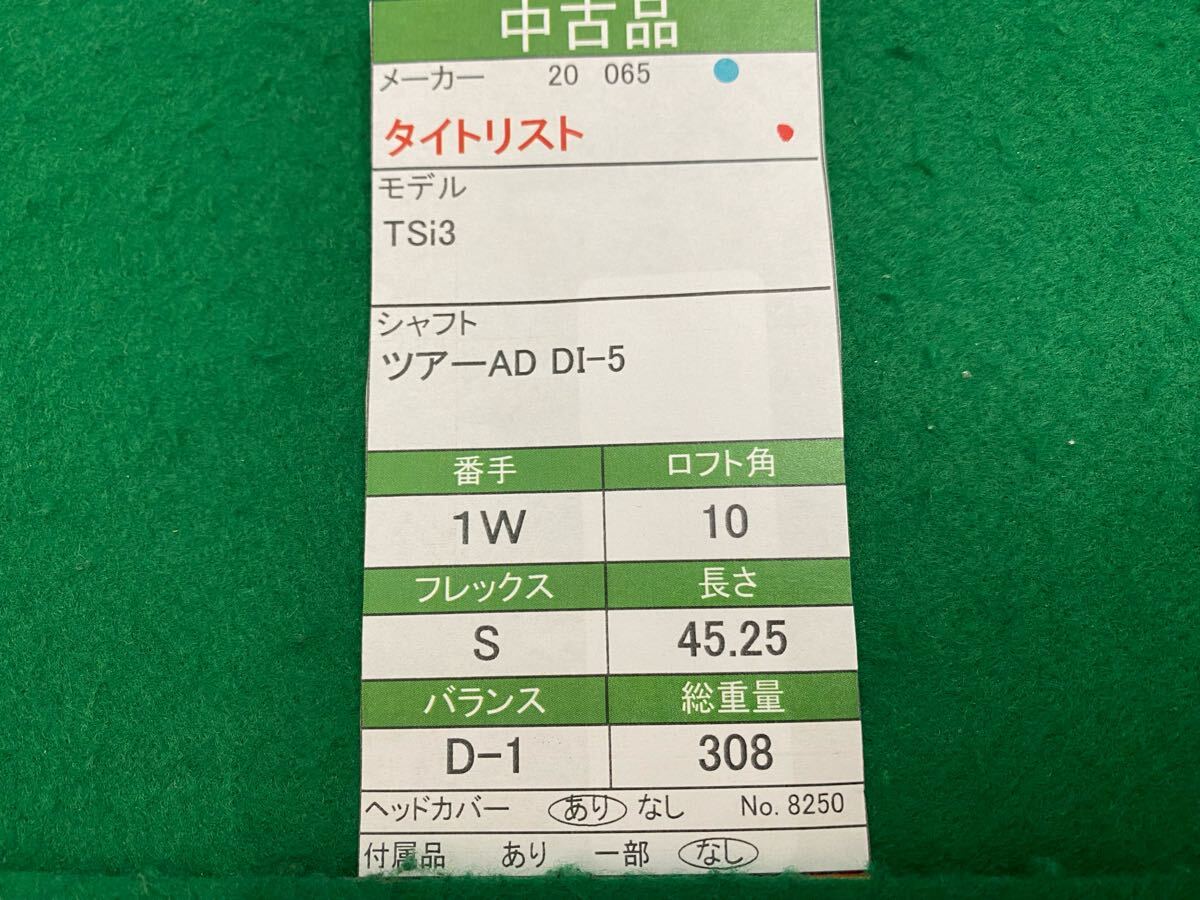 中古品
メーカー 20 065
タイトリスト
モデル
TSi3
シャフト
ツアーAD DI-5
番手 ロフト角
1W 10
フレックス 長さ
S 45.25
バランス 総重量
D-1 308
ヘッドカバー あり なし No. 8250
付属品 あり 一部 なし